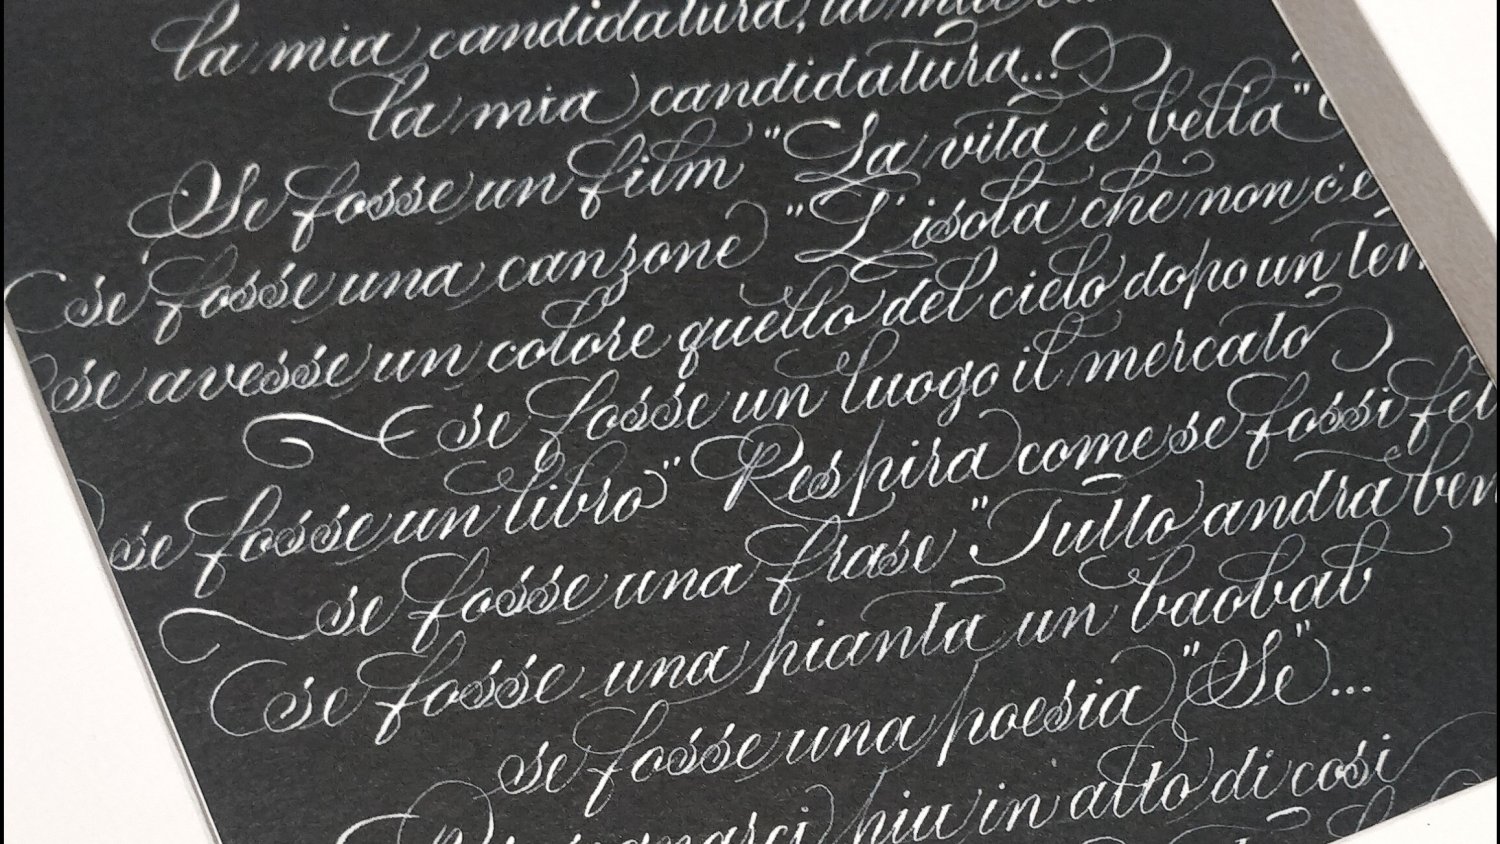 la mia candidatura, la mia
la mia candidatura...
Se fosse un film "La vita è bella"
se fosse una canzone "L'isola che non c'è
se avesse un colore quello del cielo dopo un
se fosse un luogo il mercato
se fosse un libro "Respira come se fossi
se fosse una frase "Tutto andra
se fosse una pianta un baobab
se fosse una poesia "Se"...
piu in alto di cosi